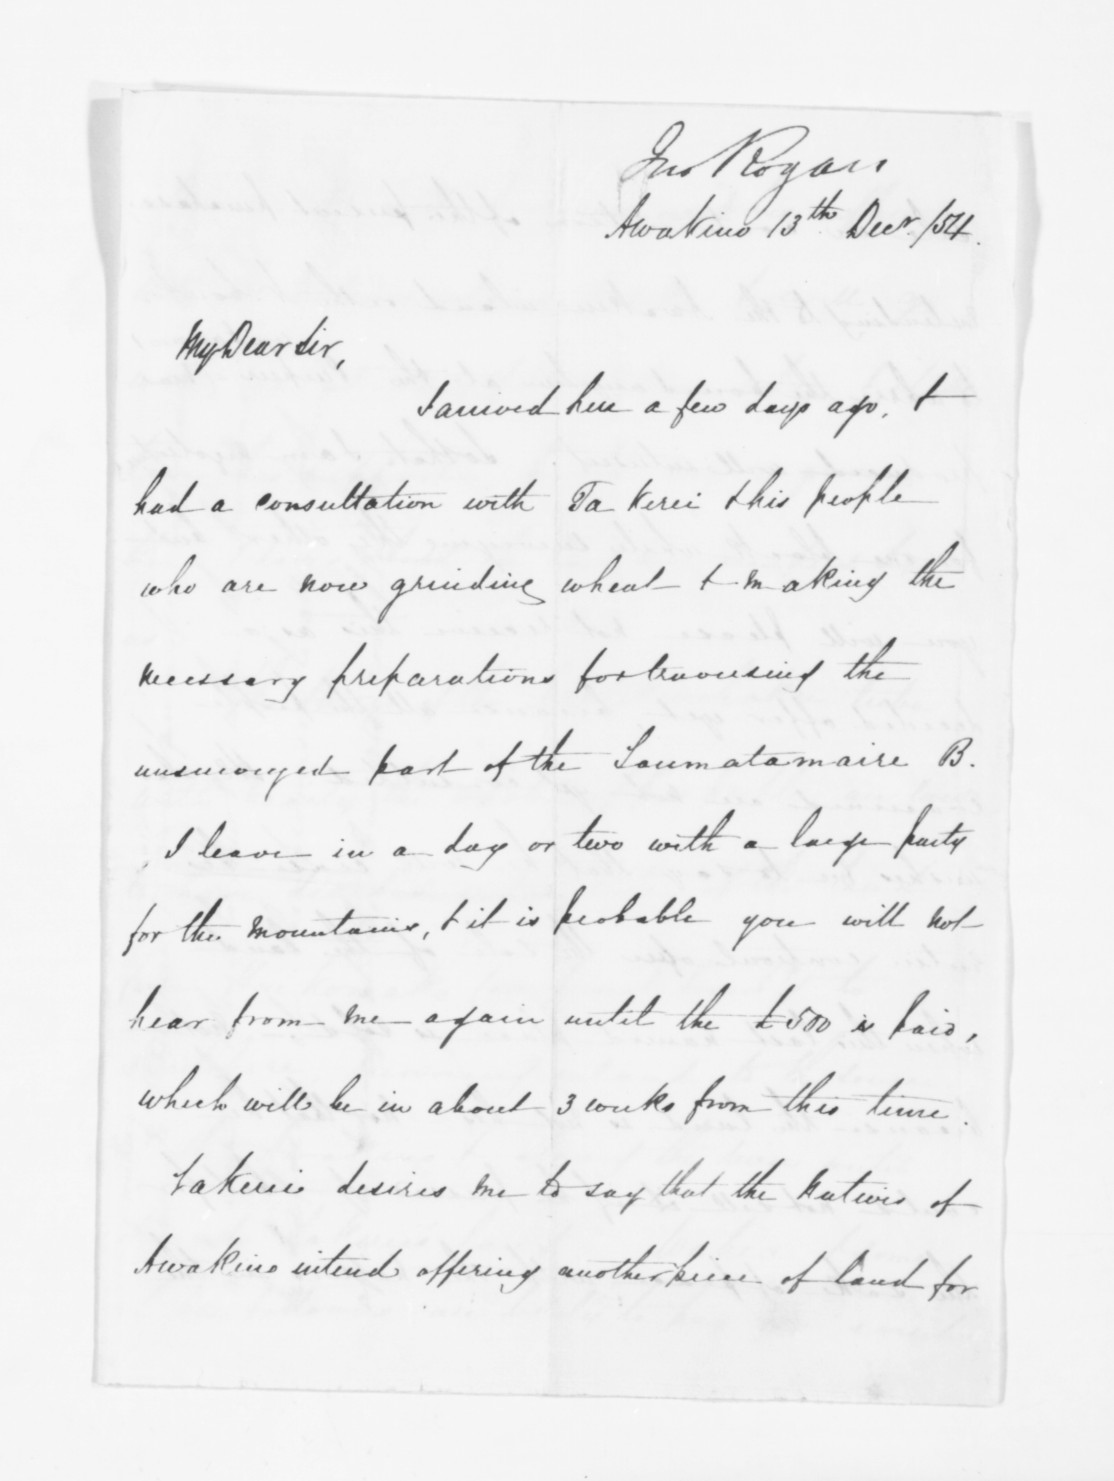 Jno Rogan
Awakino 13th Decr /54.
My Dear Sir,
I arrived here a few days ago, &
had a consultation with Ta Kerei & his people
who are now grinding wheat & making the
necessary preparations for traversing the
unsurveyed part of the Taumatamaire B.
I leave in a day or two with a large party
for the mountains, & it is probable you will not
hear from me again until the £500 is paid,
which will be in about 3 weeks from this time.
Takerei desires me to say that the Natives of
Awakino intend offering another piece of land for